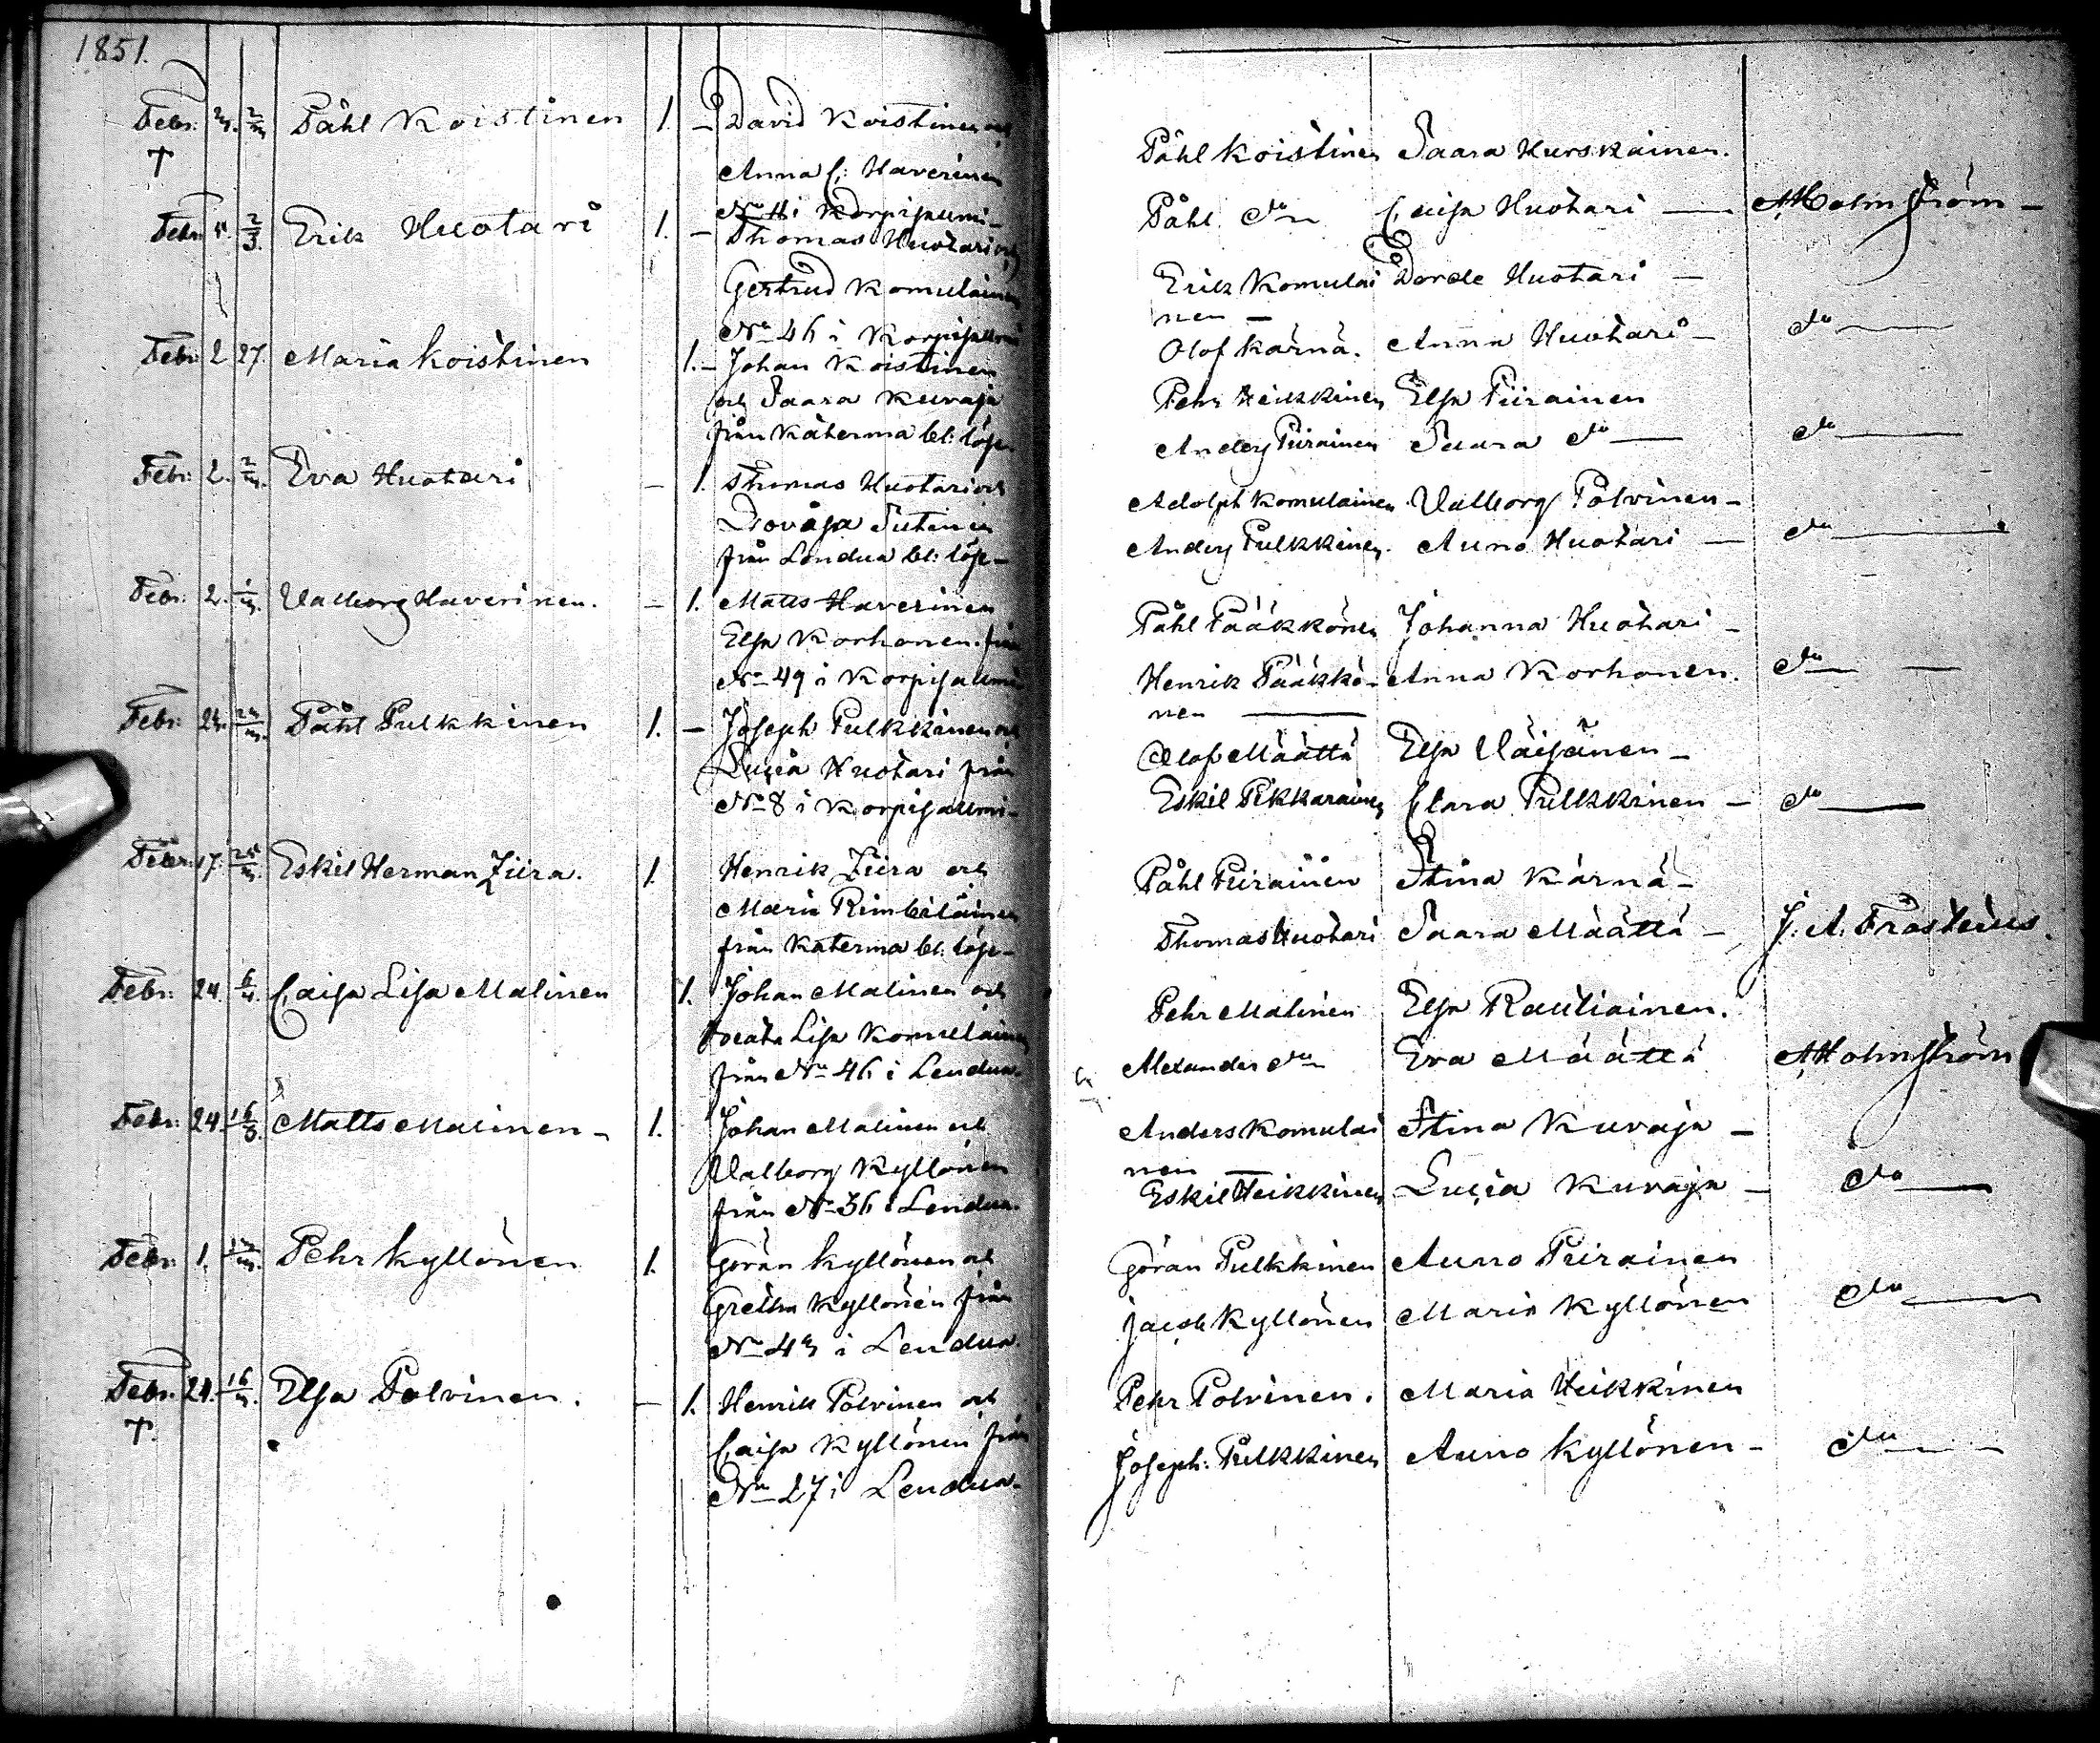 1851.
Febr: 24. 2/3 Påhl Koistinen 1. – David Koistinen och
†
Anna C: Haverinen
No 11 i Korpisalmi –
Febr 5. 2/3 Erik Huotari 1. – Thomas Huotari och
Gertrud Komulainen
No 46 i Korpisalmi
Febr: 2 27. Maria Koistinen 1. – Johan Koistinen
och Saara Kuvaja
från Katerma bl: löp.
Febr: 2. Eva Huotari – 1. Thomas Huotari och
Lovisa Sutinen
från Lendua bl: löp –
Febr: 2. Valborg Haverinen. – 1. Matts Haverinen
Elsa Korhonen. från
No 49 i Korpisalmi
Febr: 24. Påhl Pulkkinen 1. – Joseph Pulkkinen och
Lucia Huotari från
No 8 i Korpisalmi –
Febr: 17. Eskil Herman Ziira. 1. Henrik Ziira och
Maria Rimbiläinen
från Katerma bl: löp –
Febr: 24. Caisa Lisa Malinen 1. Johan Malinen och
Beata Lisa Komulainen
från No 46 i Lendua.
Febr: 24. 16/3. Matts Malinen – 1. Johan Malinen och
Valborg Kyllönen
från No 36 i Lendua.
Febr: 1. Pehr Kyllönen 1. Göran Kyllönen och
Gretha Kyllönen från
No 43 i Lendua
Febr: 24. Elsa Polvinen. – 1. Henrik Polvinen och
†.
Caisa Kyllönen från
No 27 i Lendua.
Påhl Koistinen Saara Hurskainen.
Påhl do Caisa Huotari — A Holmström –
Erik Komulai Dorde Huotari –
nen –
Olof Kärnä. Anna Huotari – do —
Pehr Heikkinen Elsa Piirainen
Anders Piirainen Saara do — do —
Adolph Komulainen Valborg Polvinen –
Anders Pulkkinen. Auno Huotari — do —
Påhl Pääkkönen Johanna Huotari –
Henrik Pääkkö– Anna Korhonen. do — —
nen —
Olof Määttä Elsa Väisänen –
Eskil Pikkarainen Clara Pulkkinen – do —
Påhl Piirainen Stina Kärnä –
Thomas Huotari Saara Määttä – J. A. Frosterus.
Pehr Malinen Elsa Rautiainen.
Alexander do Eva Määttä A Holmström
Anders Komulai Stina Kuvaja –
nen —
Eskil Heikkinen Lucia Kuvaja – do —
Göran Pulkkinen Auno Piirainen
Jacob Kyllönen Maria Kyllönen do —
Pehr Polvinen. Maria Heikkinen
Joseph: Pulkkinen Auno Kyllönen – do —